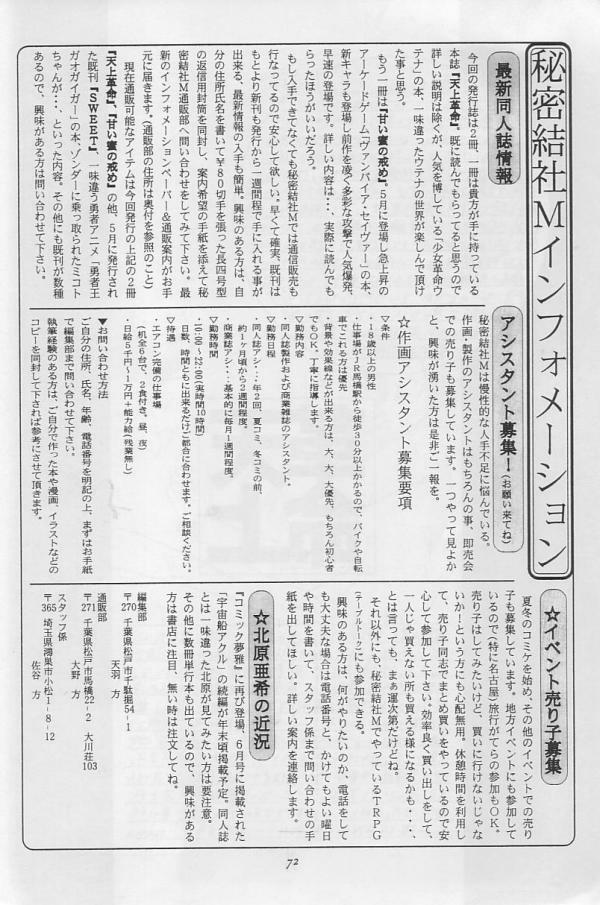 秘密結社Mインフォメーション
最新同人誌情報
今回の発行誌は2冊、一冊は貴方が手に持っている
本誌『天上革命』。既に読んでもらってると思うので
詳しい説明は除くが、人気を博している「少女革命ウ
テナ」の本、一味違ったウテナの世界が楽しんで頂け
た事と思う。
もう一冊は『甘い蜜の戒め』。5月に登場し急上昇の
アーケードゲーム「ヴァンパイア・セイヴァー」の本、
新キャラも登場し前作を凌ぐ多彩な攻撃で人気爆発、
早速の登場です。詳しい内容は・・、実際に読んでも
らったほうがいいだろう。
もし入手できてなくても秘密結社Mでは通信販売も
行なってるので安心して欲しい。早くて確実、既刊は
もとより新刊も発行から一週間程で手に入れる事が
出来る、最新情報の入手も簡単。興味のある方は、自
分の住所氏名を書いて￥80切手を張った長四号型
の返信用封筒を同封し、案内希望の手紙を添えて秘
密結社M通販部へ問い合わせをしてみて下さい。最
新のインフォメーションペーパー&通販案内がお手
元に届きます。（通販部の住所は奥付を参照のこと）
現在通販可能なアイテムは今回発行の上記の2冊
『天上革命』、『甘い蜜の戒め』の他、5月に発行され
た既刊『SWEET』、一味違う勇者アニメ「勇者王
ガオガイガー」の本、ゾンダーに乗っ取られたミコト
ちゃんが・・、といった内容。その他にも既刊が数種
あるので、興味がある方は問い合わせて下さい。
アシスタント募集!(お願い来てね)
秘密結社Mは慢性的な人手不足に悩んでいる。
作画・製作のアシスタントはもちろんの事、即売会
での売り子も募集しています。一つやって見よか
と、興味が湧いた方は是非ご一報を。
☆作画アシスタント募集要項
▽条件
・18歳以上の男性
・仕事場がJR馬橋駅から徒歩30分以上かかるので、バイクや自転
車でこれる方は優先
▽勤務内容
・背景や効果線などが出来る方は、大、大、大優先。もちろん初心者
でもOK、丁寧に指導します。
・同人誌製作および商業雑誌のアシスタント。
▽勤務日程
・同人誌アシ・・・年2回、夏コミ、冬コミの前、
約1ヶ月頃から2週間程度。
・商業誌アシ・・・基本的に毎月1週間程度。
▽勤務時間
・10:00〜22:00(実時間10時間)
日数、時間ともに出来るだけご都合に合わせます。ご相談ください。
▽待遇
・エアコン完備の仕事場
(机全6台で、2食付き。昼、夜)
・日給5千円〜1万円+能力給(残業無し)
▼お問い合わせ方法
ご自分の住所、氏名、年齢、電話番号を明記の上、まずはお手紙
で編集部まで問い合わせて下さい。
執筆経験のある方は、ご自分で作った本や漫画、イラストなどの
コピーを同封して下されば参考にさせて頂きます。
☆イベント売り子募集
夏冬のコミケを始め、その他のイベントでの売り
子も募集しています。地方イベントにも参加して
いるので（特に名古屋）旅行がてらの参加もOK。
売り子はしてみたいけど、買いに行けないじゃな
いか!という方にも心配無用。休憩時間を利用し
て、売り子同志でまとめ買いをやっているので安
心して参加して下さい。効率良く買い出しをして、
一人じゃ買えない所も買える様になるかも・・・、
とは言っても、まぁ運次第だけどね。
それ以外にも、秘密結社MでやっているTRPG
(テーブルトーク)にも参加できる。
興味のある方は、何がやりたいのか、電話をして
も大丈夫な場合は電話番号と、かけてもよい曜日
や時間を書いて、スタッフ係まで問い合わせの手
紙を出してほしい。詳しい案内を連絡します。
☆北原亜希の近況
『コミック夢雅』に再び登場、6月号に掲載された
「宇宙船アクル」の続編が年末頃掲載予定。同人誌
とは一味違った北原が見てみたい方は要注意。
その他に数冊単行本も出ているので、興味がある
方は書店に注目、無い時は注文してね。
編集部
〒270 千葉県松戸市千駄堀54-1
天羽 方
通販部
〒271 千葉県松戸市馬橋22-2 大川荘103
大野 方
スタッフ係
〒365 埼玉県鴻巣市小松1-8-12
佐谷 方
72